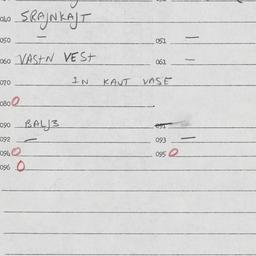 040 SRAJNKAJT
050 — 051 —
060 VASTN VEST 061 —
070 IN KAUT VASE
080 O
090 BALJ3 091
092 — 093 —
094 O 095 O
096 O